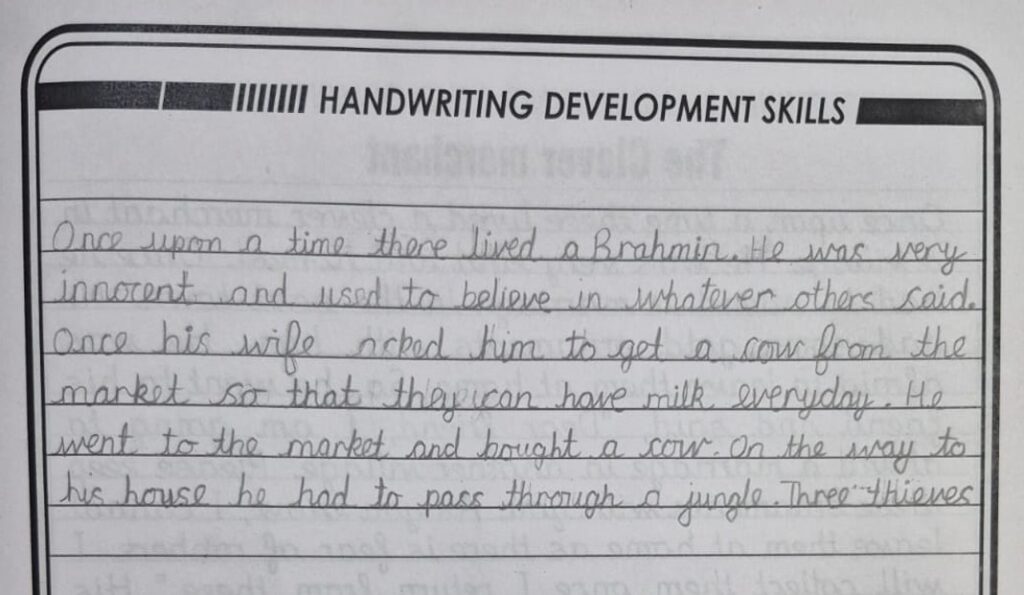 HANDWRITING DEVELOPMENT SKILLS
Once upon a time there lived a Brahmin. He was very
innocent and used to believe in whatever others said.
Once his wife him to get a cow from the
market so that they can have milk everyday. He
went to the market and bought a cow. On the way to
his house he had to pass through a jungle. Three thieves